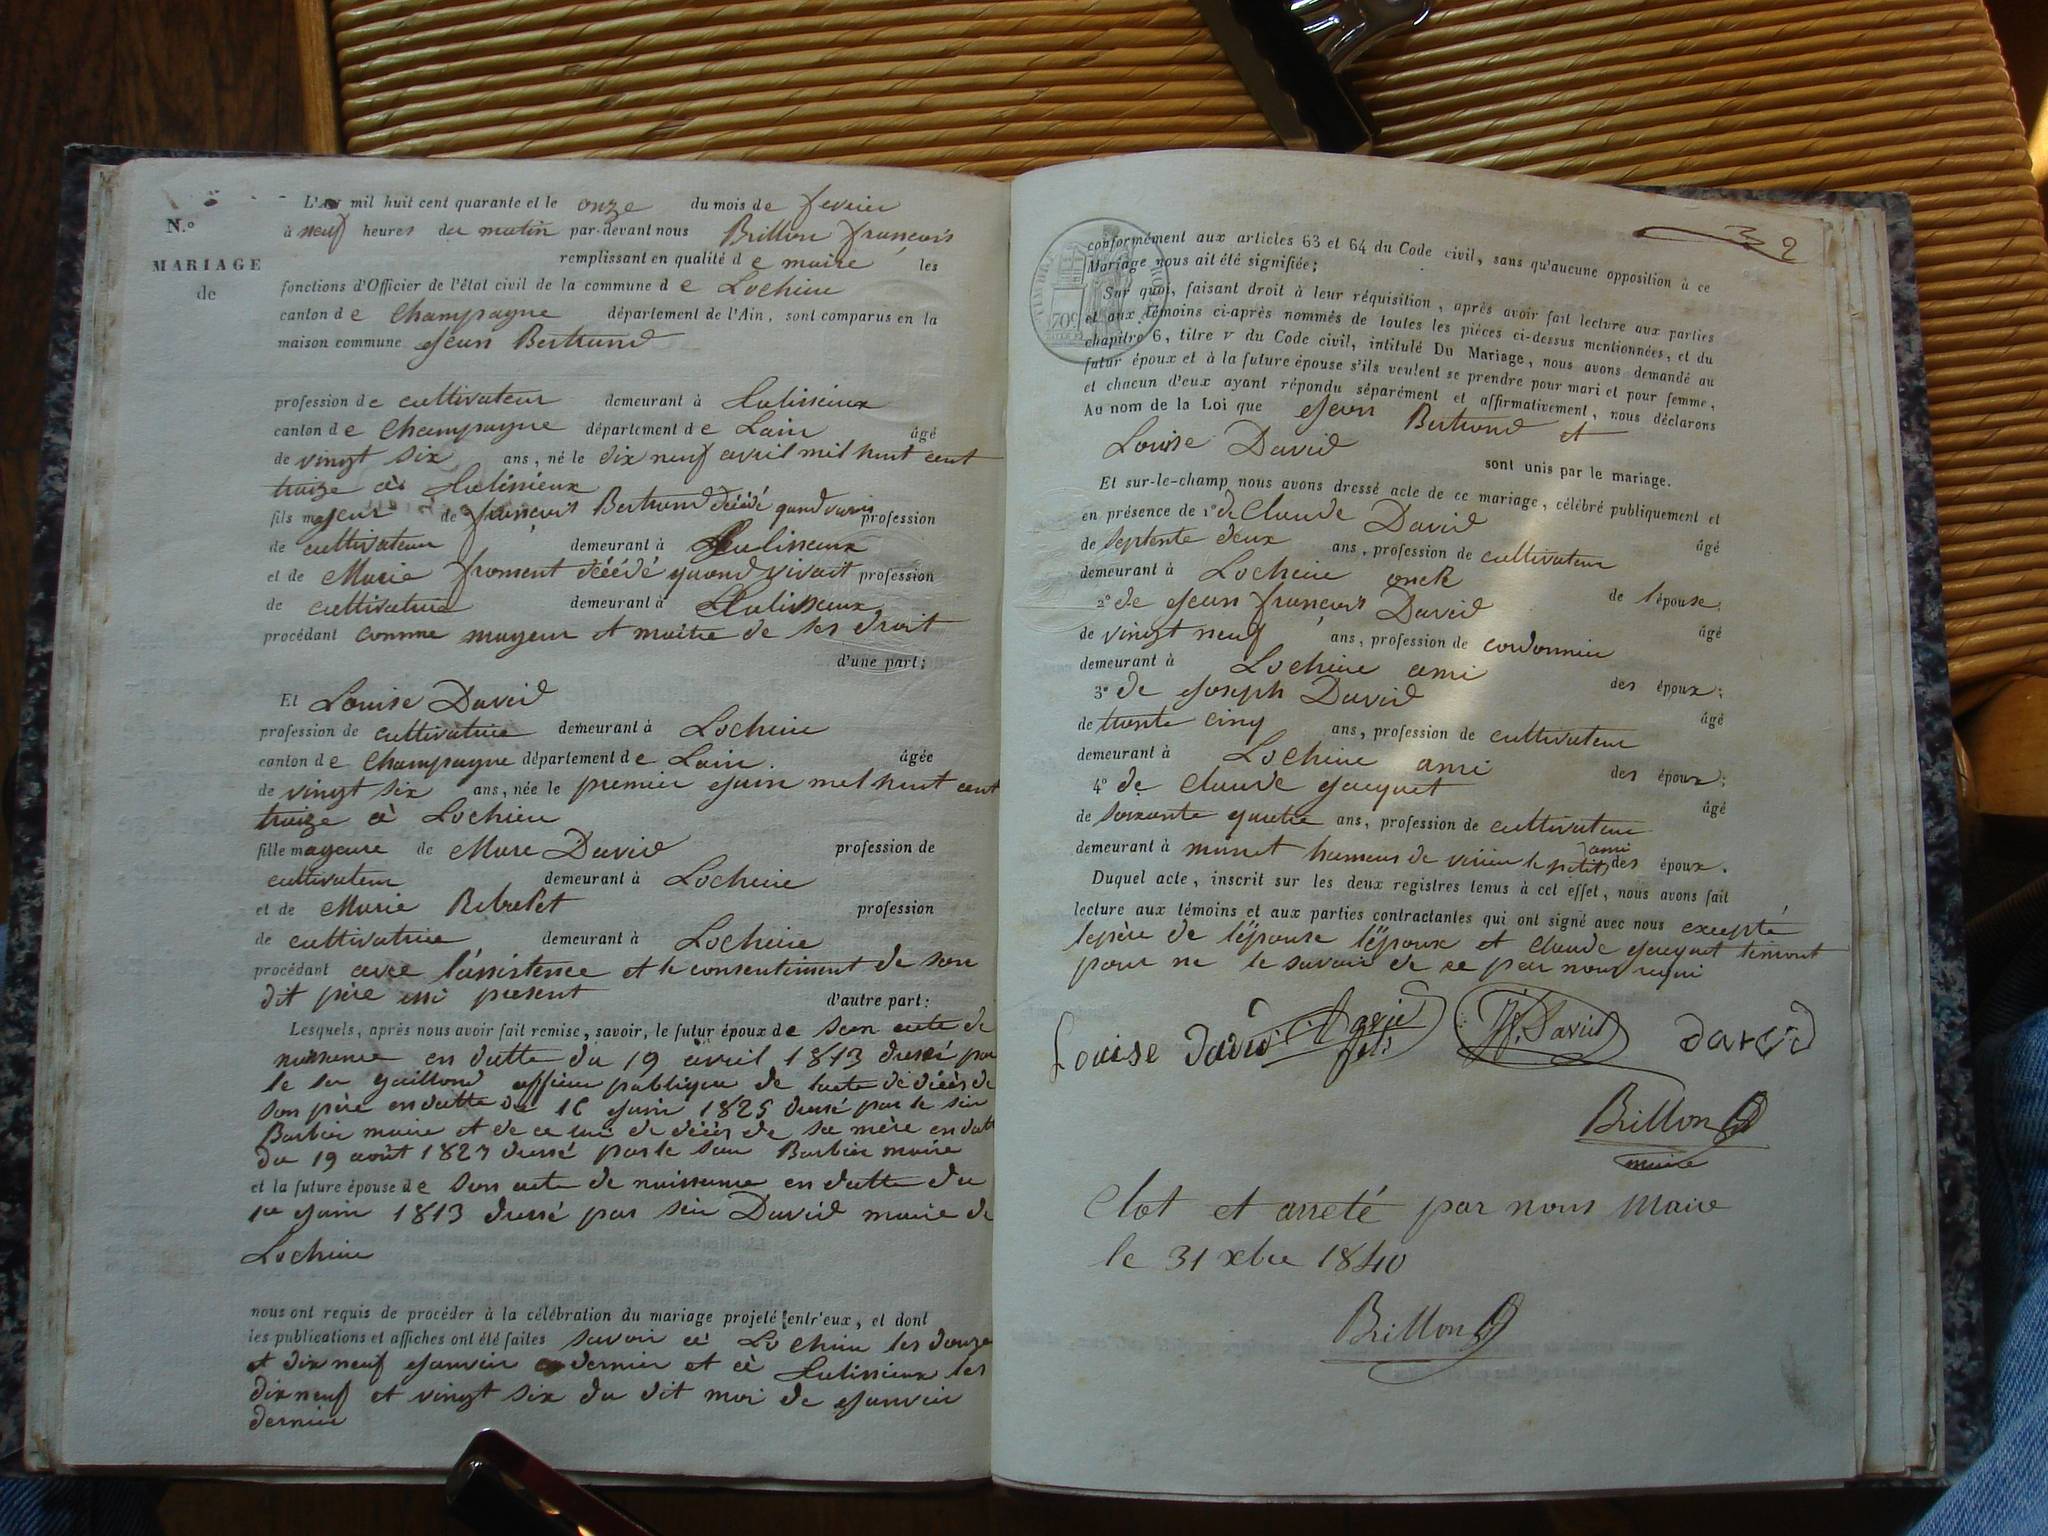 N.º
MARIAGE
de
L'An mil huit cent quarante et le onze du mois de fevrier
à neuf heures du matin par-devant nous Brillon françois
remplissant en qualité de maire les
fonctions d'Officier de l'état civil de la commune de Lochieu
canton de Champagne département de l'Ain, sont comparus en la
maison commune Jean Bertrand
profession de cultivateur demeurant à Sutirieux
canton de Champagne département de Lain âgé
de vingt six ans, né le dix neuf avril mil huit cent
treize à
fils majeur de françois Bertrand décédé quand vivait profession
de cultivateur demeurant à
et de Marie froment décédé quand vivait profession
de cultivatrice demeurant à
procédant comme mayeur et maitre de ses droit
d'une part;
Et Louise David
profession de cultivatrice demeurant à Lochieu
canton de Champagne département de Lain. âgée
de vingt six ans, née le premier Juin mil huit cent
treize à Lochieu
fille mayeure de Marc David profession de
cultivateur demeurant à Lochieu
et de Marie profession
de cultivatrice demeurant à Lochieu
procédant avec l'assistence et le consentiment de son
dit père ici present d'autre part:
Lesquels, après nous avoir fait remise, savoir, le futur époux de son acte de
naissance en datte du 19 avril 1813 dressé par
le sr officier publique de lacte de décès de
son père en datte du 16 Juin 1825 dressé par le sieur
Barbier maire et de ce lui de décès de sa mère en datte
du 19 août 1827 dressé par le sieur Barbier maire
et la future épouse de son acte de naissance en datte du
1er Juin 1813 dressé par sieur David maire de
Lochieu
nous ont requis de procéder à la célébration du mariage projeté entr'eux, et dont
les publications et affiches ont été faites savoir à Lochieu les douze
et dix neuf Janvier dernier et à les
dix neuf et vingt six du dit moi de Janvier
dernier
32
conformément aux articles 63 et 64 du Code civil, sans qu'aucune opposition à ce
Mariage nous ait été signifiée;
Sur quoi, faisant droit à leur réquisition, après avoir fait lecture aux parties
et aux témoins ci-après nommés de toutes les pièces ci-dessus mentionnées, et du
chapitre 6, titre v du Code civil, intitulé Du Mariage, nous avons demandé au
futur époux et à la future épouse s'ils veulent se prendre pour mari et pour femme,
et chacun d'eux ayant répondu séparément et affirmativement, nous déclarons
Au nom de la Loi que Jean Bertrand et
Louise David
sont unis par le mariage.
Et sur-le-champ nous avons dressé acte de ce mariage, célébré publiquement et
en présence de 1º de Claude David
de septente deux ans, profession de cultivateur âgé
demeurant à Lochieu oncle de l'épouse;
2º de Jean françois David
de vingt neuf ans, profession de cordonnier âgé
demeurant à Lochieu ami des époux;
3º de Joseph David
de trente cinq ans, profession de cultivateur âgé
demeurant à Lochieu ami des époux;
4º de Claude Jacquet
de soixante quatre ans, profession de cultivateur âgé
demeurant à hameau de virieu le petit ami des époux.
Duquel acte, inscrit sur les deux registres tenus à cet effet, nous avons fait
lecture aux témoins et aux parties contractantes qui ont signé avec nous excepté
le père de l'épouse l'époux et Claude Jacquet temoint
pour ne le savoir de ce par nous requi
Louise David J f. David David
Brillon
maire
Clot et arreté par nous Maire
le 31 xbre 1840
Brillon